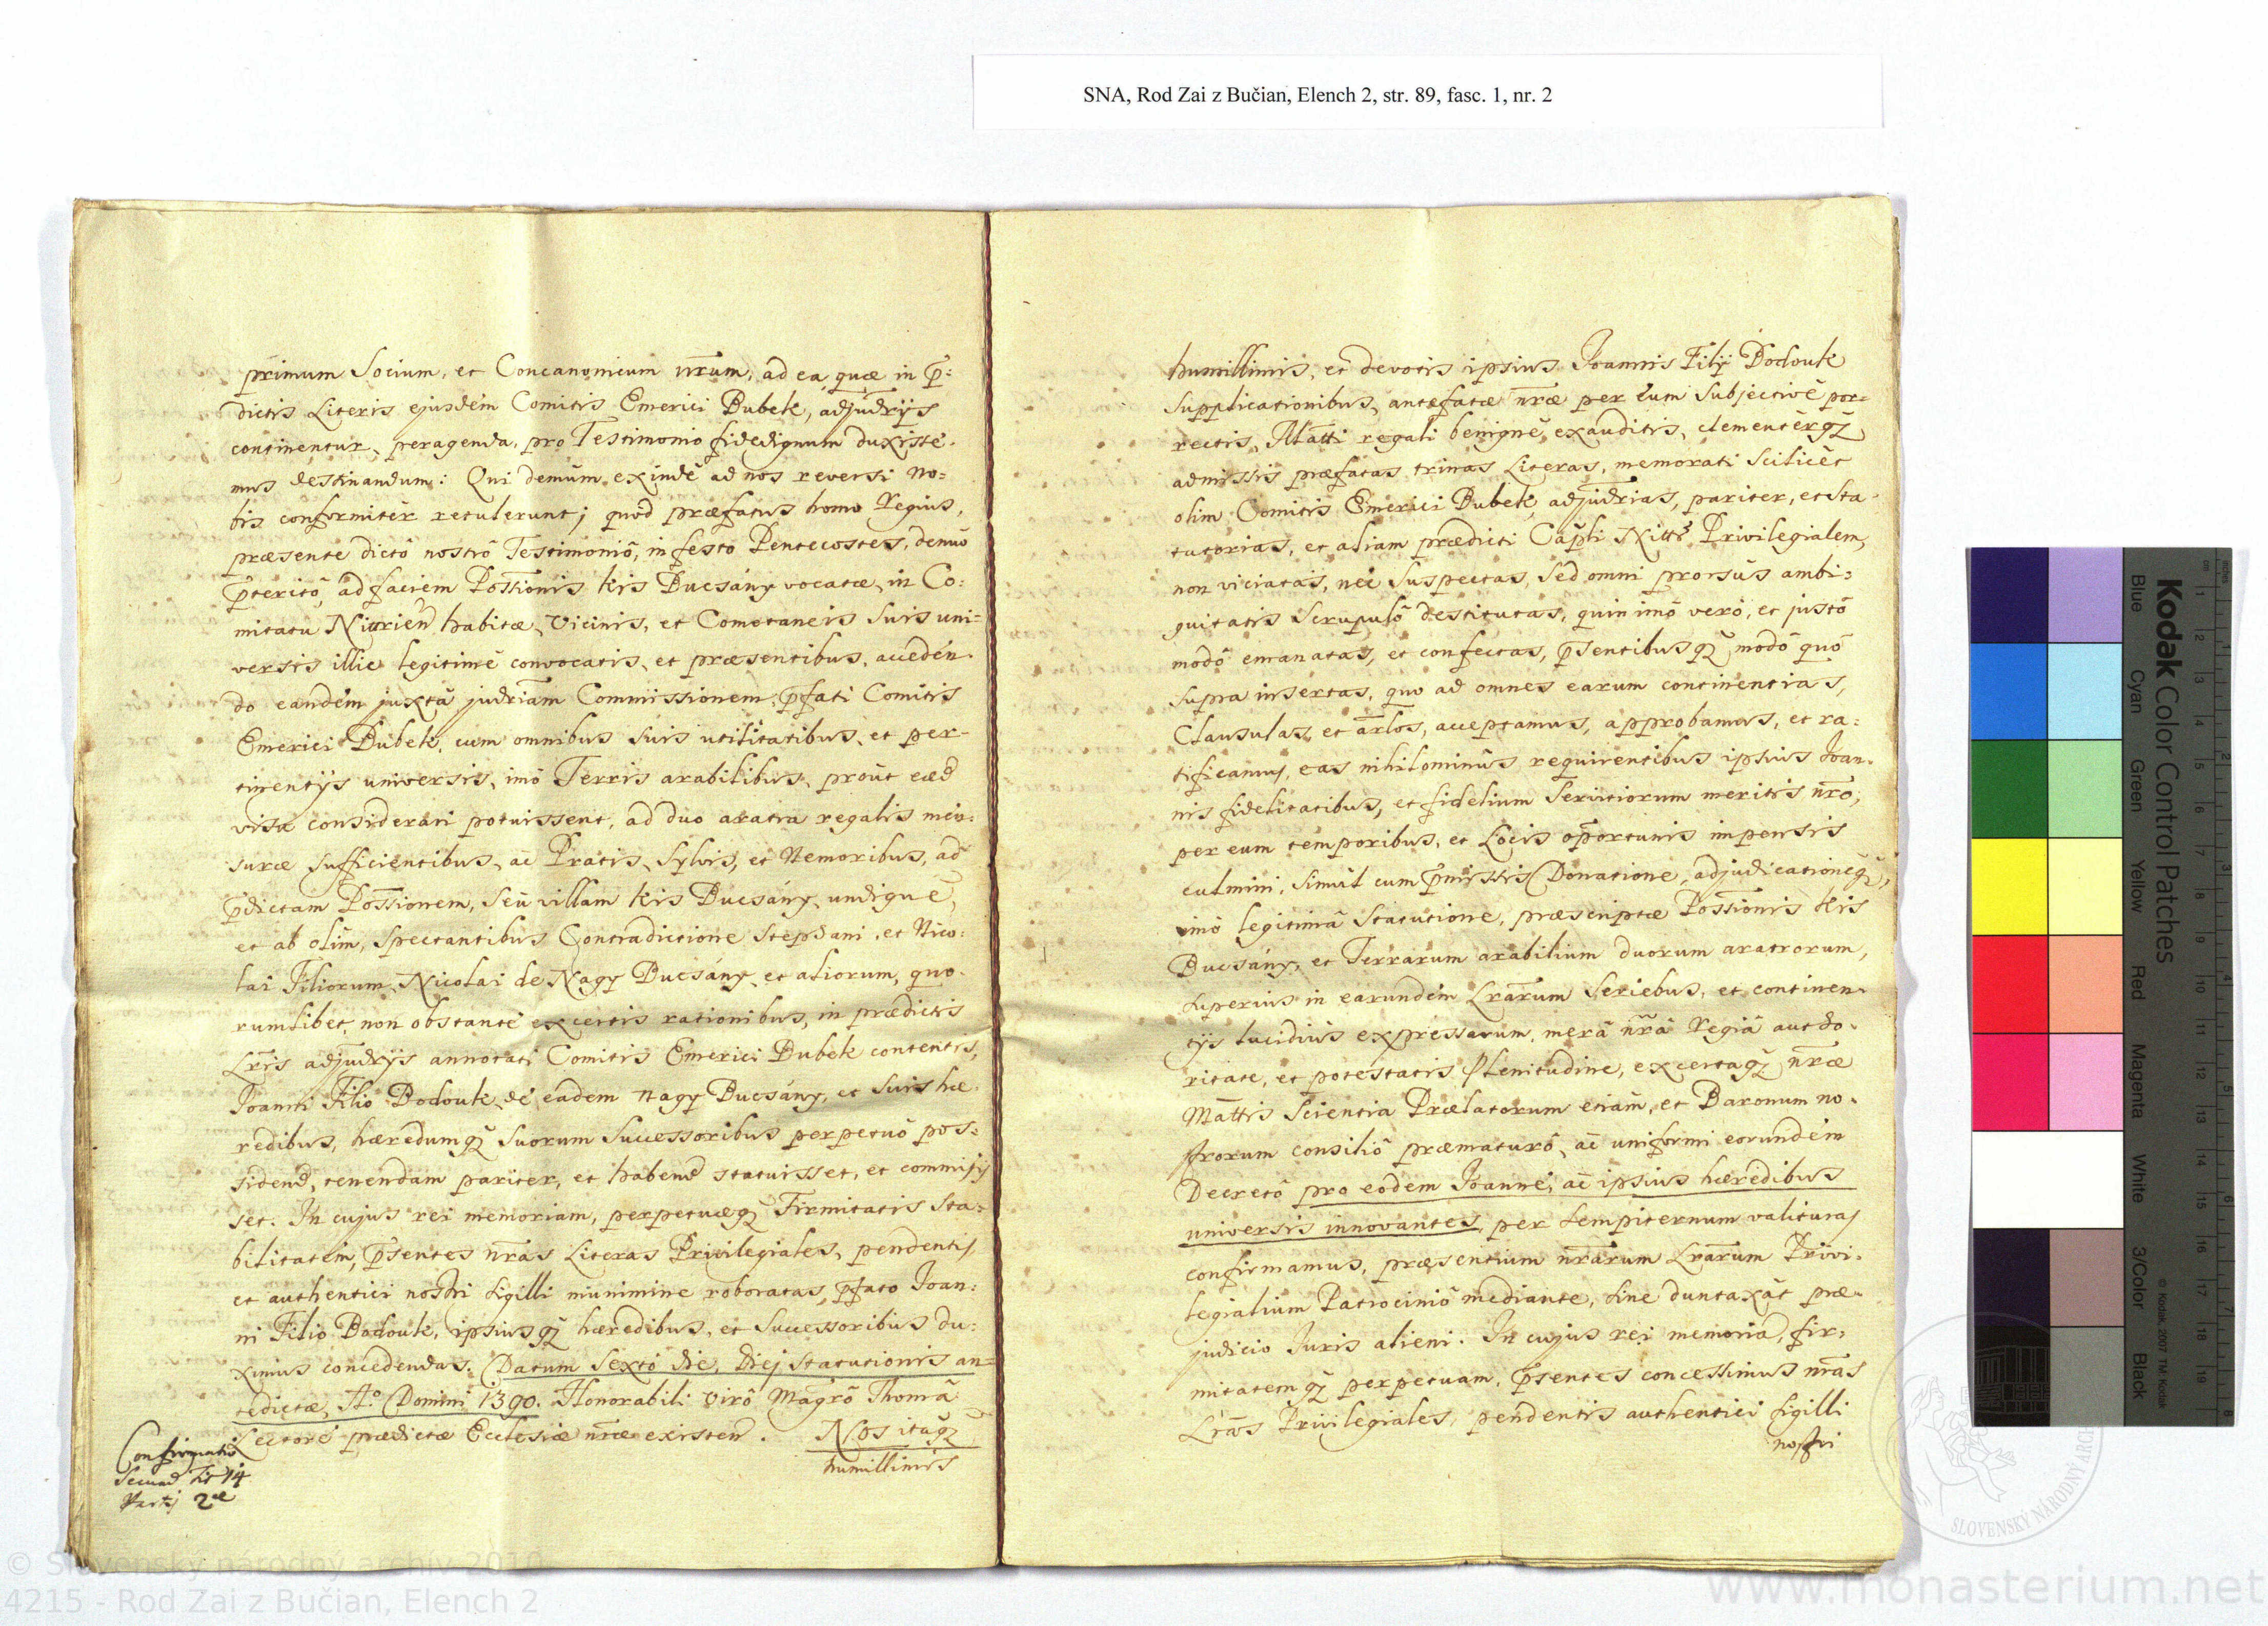 SNA, Rod Zai z Bučian, Elench 2, str. 89, fasc. 1, nr. 2
primum Socium, et Concanonicum nr̄um, ad ea, quæ in p̄:
dictis Literis ejusdém Comitis Emerici Bubek, adjudr̄ijs
continentur, peragenda, pro Testimonio fidedignum duxisse-
mus destinandum: Qui demùm exindè ad nos reversi no=
bis conformitèr retulerunt; quòd præfatus homo Regius,
præsente dictô nostrô Testimoniô, in festo Pentecostes, denuò
p̄teritô, ad faciem Possionis Kis Bucsány vocatæ, in Co:
mitatu Nittrien̄ habitæ, Vicinis, et Cometaneis Suis uni=
versis illic legitimè convocatis, et præsentibus, acceden-
do eandem juxtà judr̄iam Commissionem, p̄fati Comitis
Emerici Bubek, cum omnibus suis utilitatibus, et per-
tinentÿs universis, imò Terris arabilibus, proùt eæd̄
visæ considerari potuissent, ad duo aratra regalis men:
suræ sufficientibus, ac Pratis, Sylvis, et Nemoribus, ad
p̄dictam Possionem, seù villam Kis Bucsány, undique,
et ab olim, spectantibus Contradictione Stephani, et Nico:
lai Filiorum Nicolai de Nagy Bucsány, et aliorum, quo-
rumlibet, non obstante ex certis rationibus, in prædictis
Lr̄is adjudr̄ijs annotati Comitis Emerici Bubek contentis,
Joanni Filio Bodouk, de eadem Nagy Bucsány, et Suis hæ-
redibus, hæredumq̄ Suorum Successoribus perpetuò pos:
sidend̄, tenendam pariter, et habend̄ statuisset, et commisis
set. In cujus rei memoriam, perpetuæq̄ Firmitatis Sta=
bilitatem, p̄sentes nr̄as Literas Privilegiales, pendentis
et authentici nostri Sigilli munimine roboratas, p̄fato Joan:
ni Filio Bodouk, ipsiusq̄ hæredibus, et Successoribus du:
ximus concedendas. Datum Sexto die, Diej Statutionis an=
tedictæ, A.° Domini 1390. Honorabili Virô Magr̄ô Thomâ
Lectore prædictæ Ecclesiæ nr̄æ existen̄. Nos itaq̄
humillimis
Confirmatio
Secund Tit 14
Partis 2æ
humillimis, et devotis ipsius Joannis Filÿ Bodouk
Supplicationibus, antefatæ nr̄æ per eum Subjectivè por=
rectis, Matti regali benignè exauditis, clementèrq̄
admissis præfatas trinas Literas, memorati Scilicèt
olim Comitis Emerici Bubek adjudr̄ias, pariter, et Sta-
tutorias, et aliam prædicti Capli Nittr Privilegialem,
non viciatas, nec Suspectas, Sed omni prorsùs ambi=
guitatis Scrupulô destitutas, quin imò verò, et justô
modô emanatas, et confectas, p̄sentibusq̄ modô quô
Supra insertas, quo ad omnes earum continentias,
Clausulas, et ar̄los, acceptamus, approbamus, et ra:
tificamus, eas nihilominùs requirentibus ipsius Joan-
nis fidelitatibus, et fidelium Servitiorum meritis nr̄o,
per eum temporibus, et Locis oportunis impensis
culmini, Simùl cum p̄missis Donatione, adjudicationeq̄,
imò legitimâ Statutione, præscriptæ Possionis Kis
Bucsány, et Terrarum arabilium duorum aratrorum,
superius in earundèm Lrarum Seriebus, et continen-
tÿs lucidiùs expressarum, merâ nr̄â Regiâ autho-
ritate, et potestatis Plenitudine, ex certaq̄ nr̄æ
Mattis Scientia Prælatorum etiam, et Baronum no-
strorum consiliô præmaturô, ac uniformi eorundèm
Decretô pro eodem Joanne, ac ipsius hæredibus
universis innovantes, per sempiternum valituras
confirmamus, præsentium nr̄arum Lr̄arum Privi-
legialium Patrociniô mediante, sine duntaxàt præ-
judicio Iuris alieni. In cujus rei memoriā, fir=
mitatemq̄ perpetuam, p̄sentes concessimus nr̄as
Lr̄as Privilegiales, pendentis authentici sigilli
nostri
Kodak Color Control Patches
Blue Cyan Green Yellow Red Magenta White 3/Color Black
© Kodak, 2007 TM: Kodak
SLOVENSKÝ NÁRODNÝ ARCHÍV
© Slovenský národný archív 2010
4215 - Rod Zai z Bučian, Elench 2
www.monasterium.net